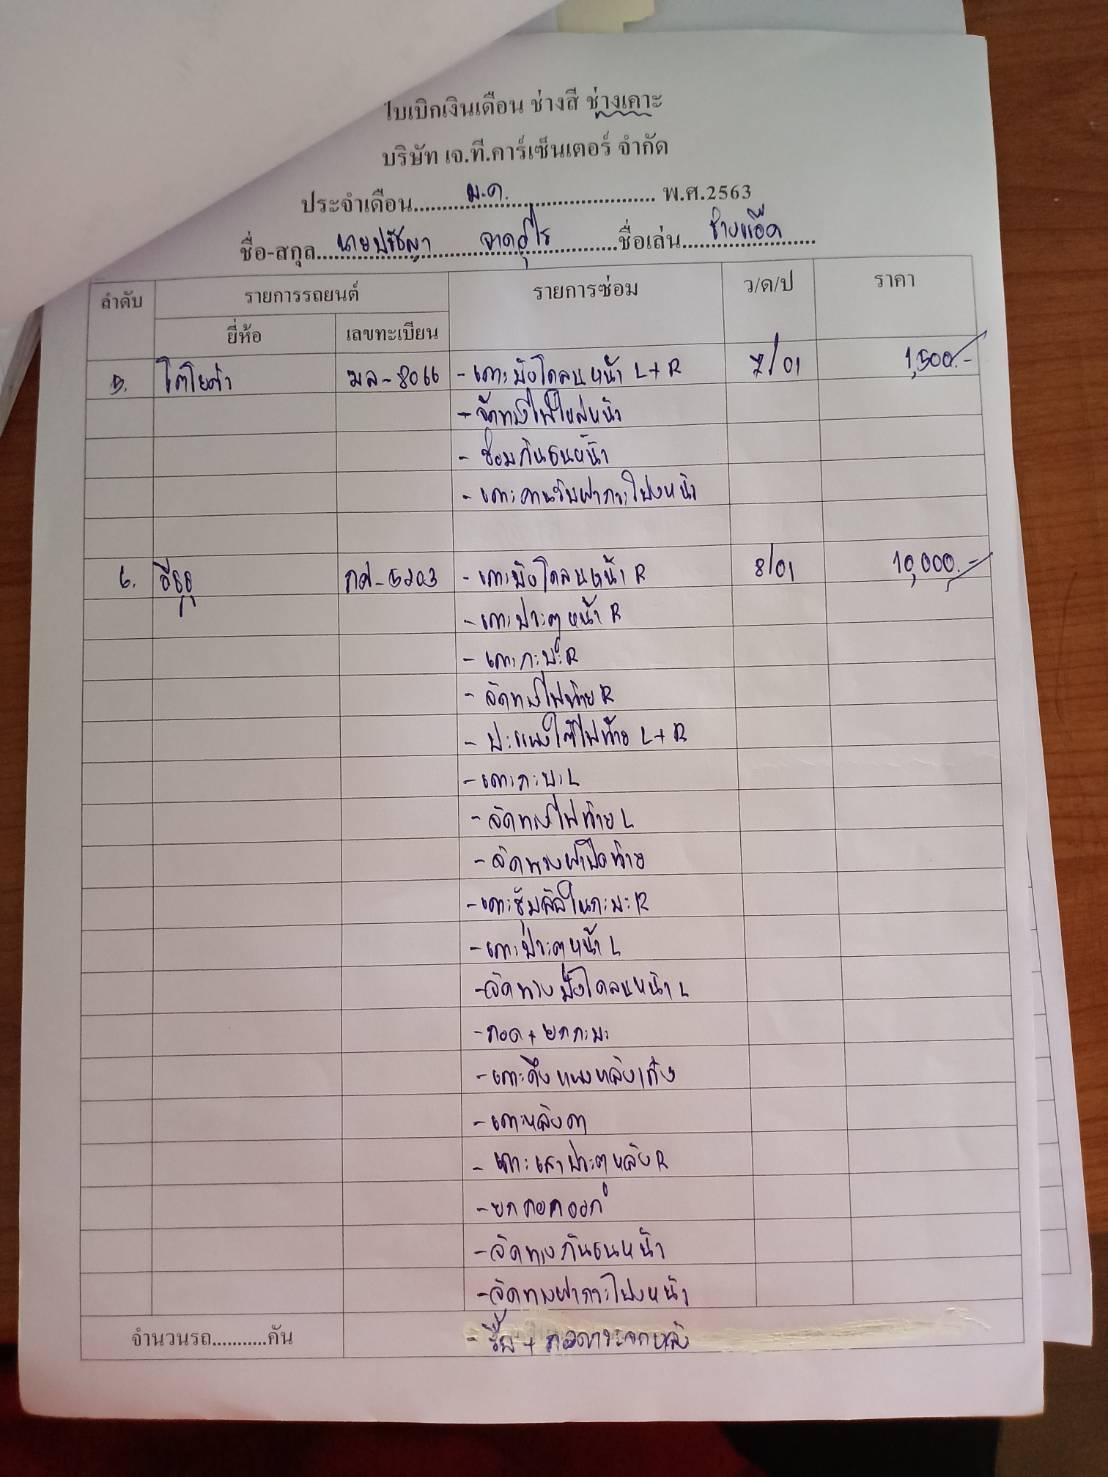 ใบเบิกเงินเดือน ช่างสี ช่างเคาะ
บริษัท เจ.ที.คาร์เซ็นเตอร์ จำกัด
ประจำเดือน ม.ค. พ.ศ.2563
ชื่อ-สกุล นายปรัชญา ชื่อเล่น ช่างแอ๊ด
ลำดับ รายการรถยนต์ รายการซ่อม ว/ด/ป ราคา
ยี่ห้อ เลขทะเบียน
5. โตโยต้า ฆล-8066 - เคาะบังโคลนหน้า L+R 7/01 1,500.-
- จัดทรงไฟใหญ่หน้า
- ซ่อมกันชนหน้า
- เคาะคานรับฝากระโปรงหน้า
6. อีซูซุ 5203 - เคาะบังโคลนหน้า R 8/01 10,000.-
- เคาะประตูหน้า R
- เคาะกะบะ R
- จัดทรงไฟท้าย R
- ปะแผงใต้ไฟท้าย L+R
- เคาะกะบะ L
- จัดทรงไฟท้าย L
- จัดทรงฝาปิดท้าย
- เคาะซุ้มล้อในกะบะ R
- เคาะประตูหน้า L
- จัดทรงบังโคลนหน้า L
- ถอด + ยกกะบะ
- เคาะดึงแผงหลังเก๋ง
- เคาะหลังคา
- เคาะเสาประตูหลัง R
- จัดทรงกันชนหน้า
- จัดทรงฝากระโปรงหน้า
จำนวนรถ...........คัน - รื้อ + ถอดกระจกหลัง